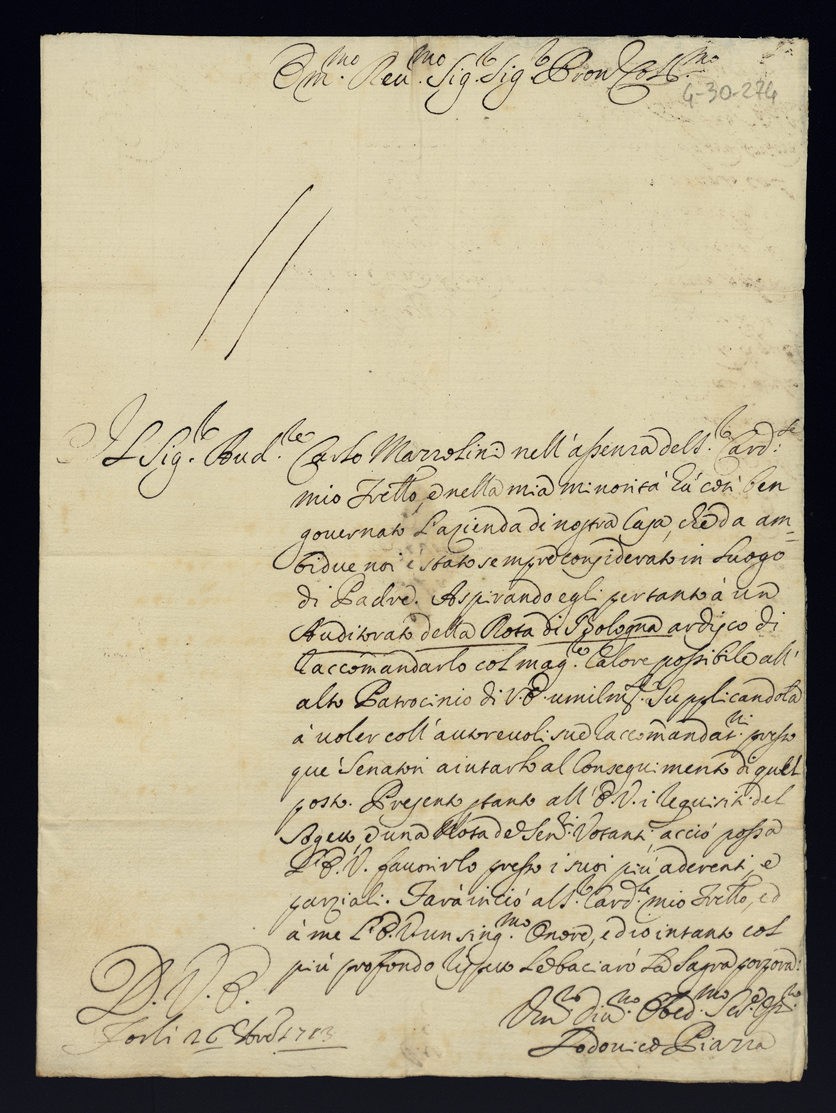 Em.mo Reu.mo Sig.r Sig.r Pron Col.mo
4-30-274
Il Sig.r Aud.re Carlo Mazzolini nell'assenza del S.r Card.le
mio Frello, e nella mia minorità hà così ben
governato l'azienda di nostra Casa, che da am=
bidue noi è stato sempre considerato in luogo
di Padre. Aspirando egli pertanto à un
Auditorato della Rota di Bologna ardisco di
raccomandarlo col mag.re calore possibile all'
alto Patrocinio di V.E. umilm.te supplicandola
à voler coll'autorevoli sue raccomandat.ni presso
que' Senatori aiutarlo al conseguimento di quel
posto. Presento ptanto all'E.V. i requisiti del
Sogetto, e una Nota de Sen.ri Votanti, acciò possa
l'E.V. favorirlo presso i suoi più aderenti, e
parziali. Farà in ciò al S.r Card.le mio Frello, ed
à me l'E.V. un sing.mo Onore, ed io intanto col
più profondo rispetto le baciarò la Sagra porpora:
D.V.E.
Forlì 26 1713
Um.mo Diu.mo Obed.mo Ser.e
Lodovico Piazza